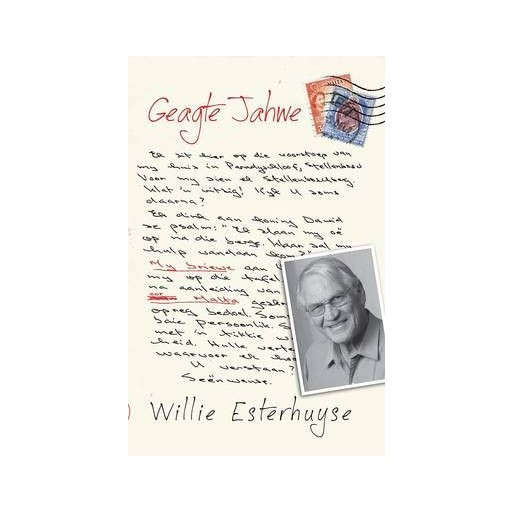 Geagte Jahwe
Ek sit hier op die voorstoep van
my huis in Paradyskloof, Stellenbosch
Voor my sien ek Stellenboschberg.
Wat 'n uitsig! Kyk U soms
daarna?
Ek dink aan koning Dawid
se psalm: "Ek slaan my oë
op na die berge. Waar sal my
hulp vandaan kom?"
My briewe aan
my op die tafel
na aanleiding van
oor Malta
opreg bedoel. Som
baie persoonlik. S
met 'n tikkie
heid. Hulle verte
waarvoor ek
U verstaan?
Seënwense.
Willie Esterhuyse